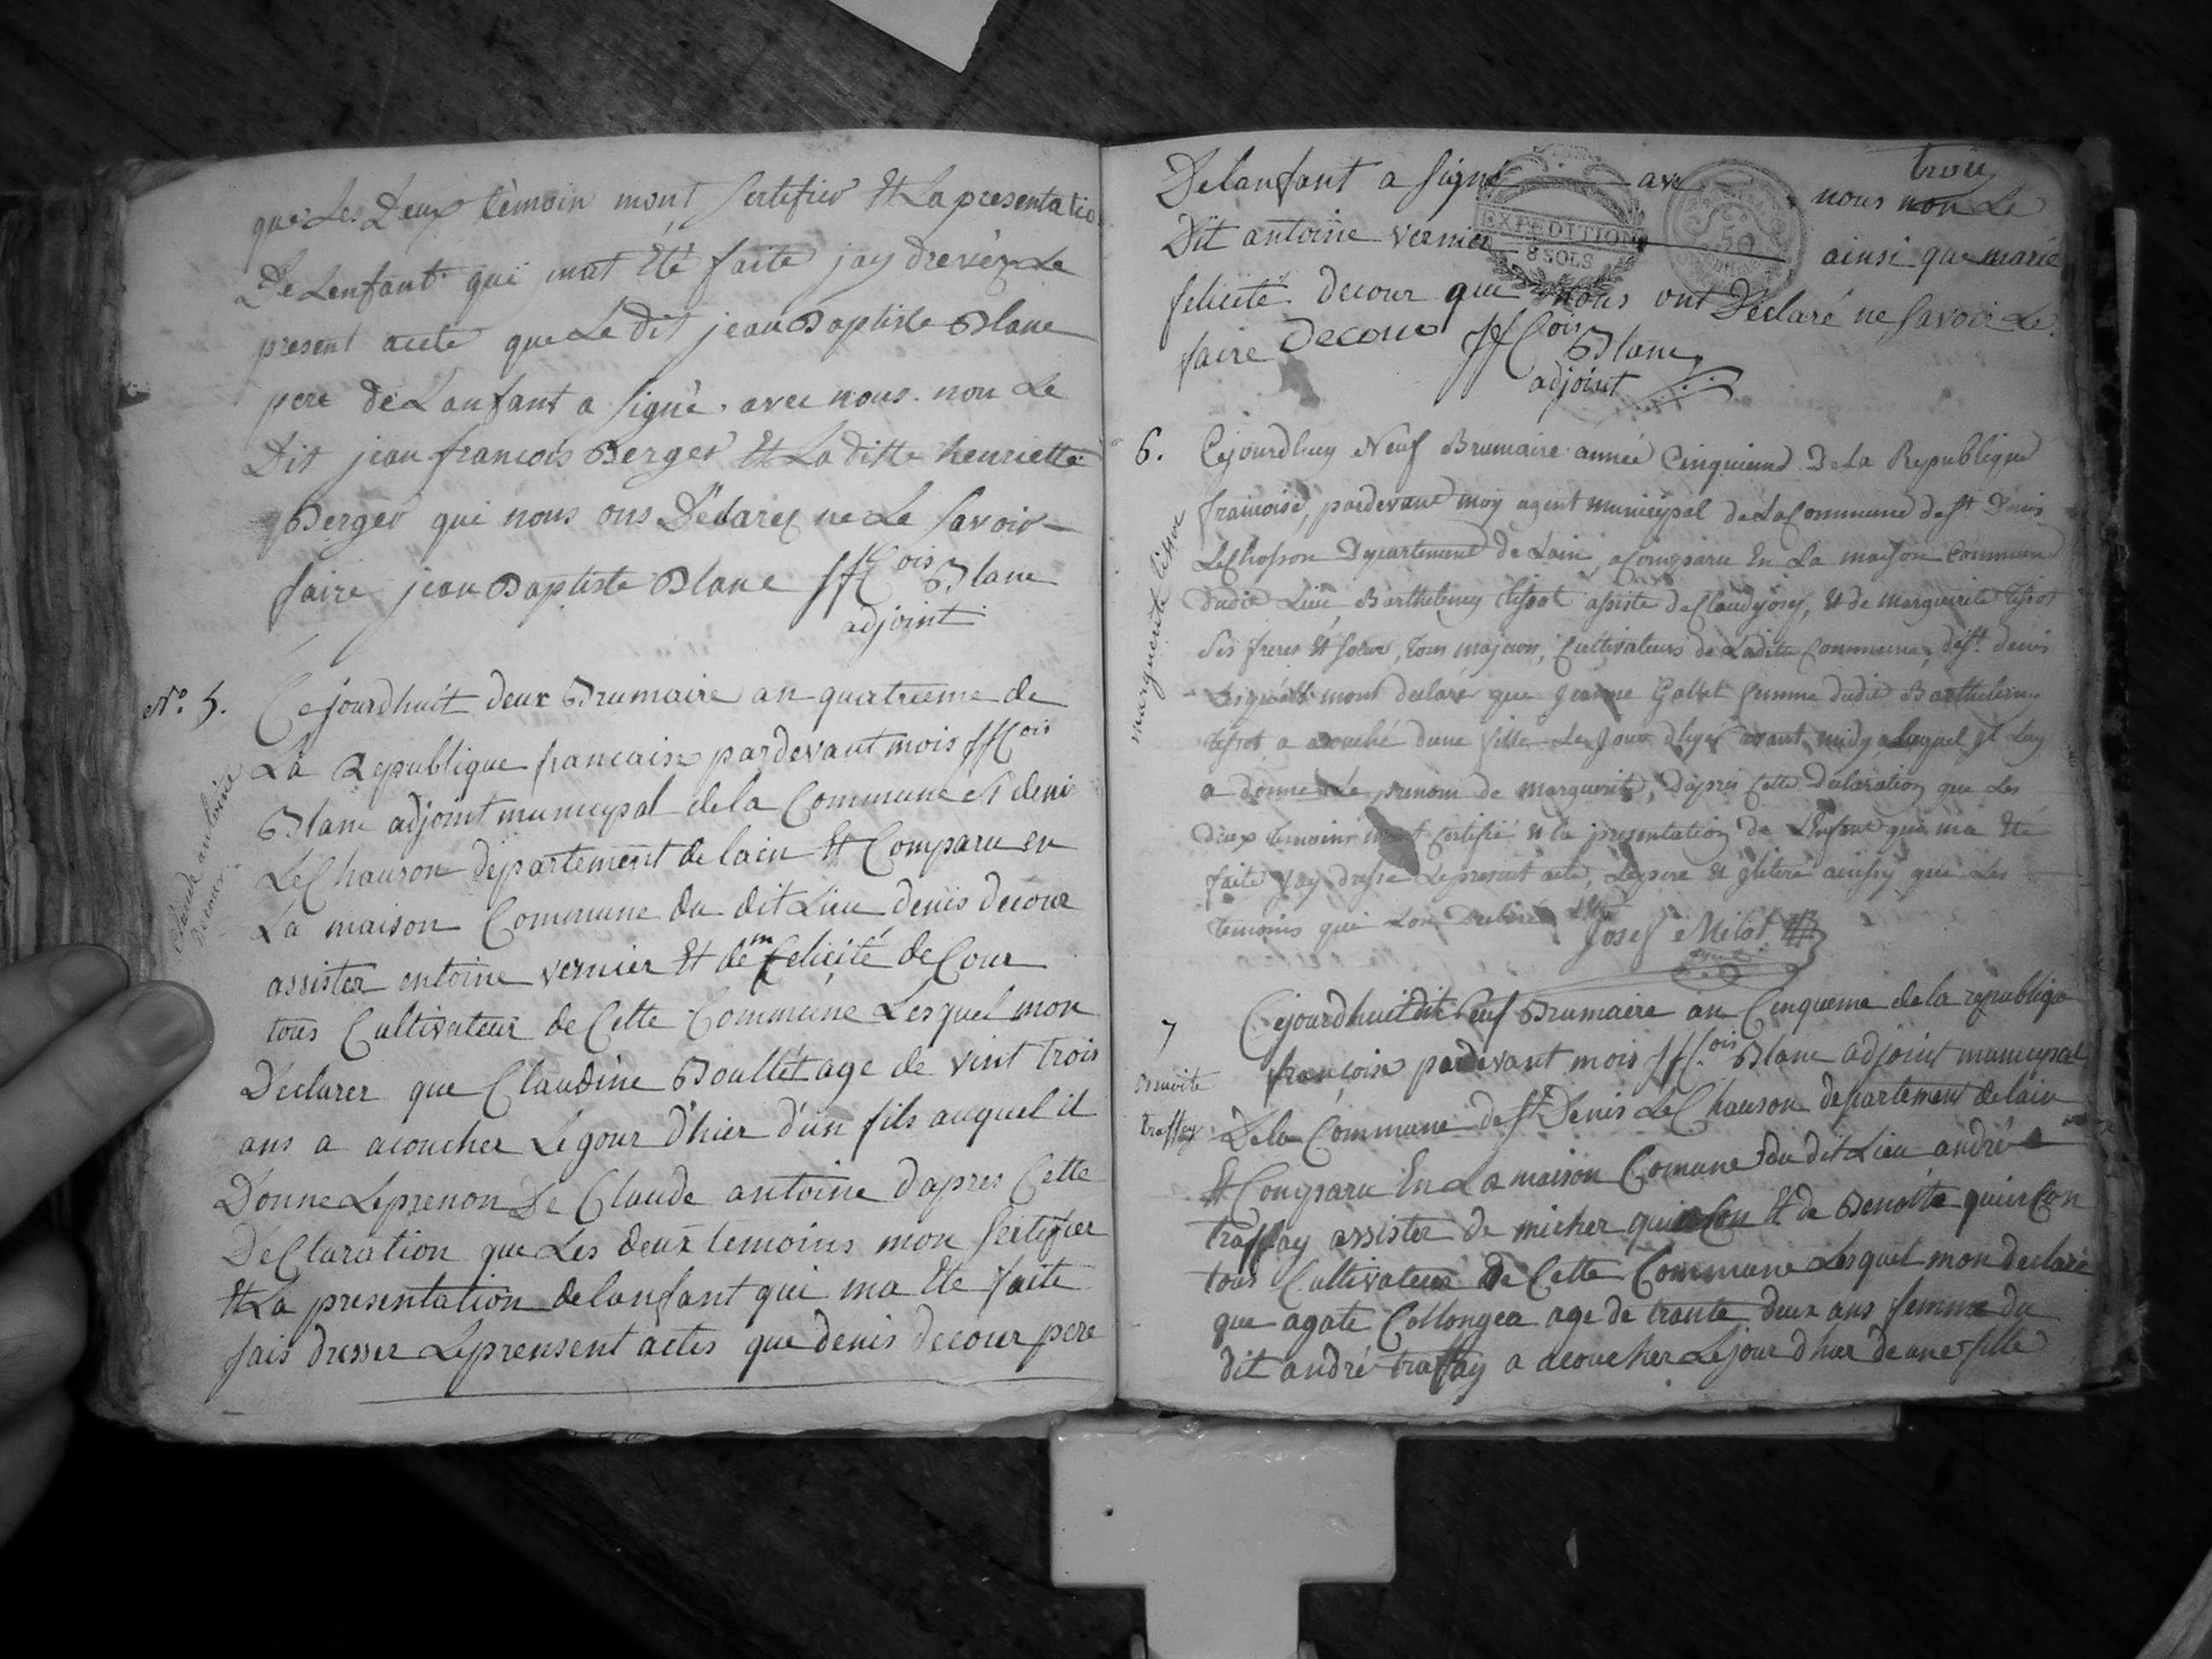 que Les Deux temoin mont sertifier Et La presentatio
De Lenfant qui mat Eté faite jay dresséz Le
present acte que Le dit jean Baptiste Blanc
pere de Lanfant a signè. avec nous. non Le
Dit jean francois Berger Et La ditte henriette
Berger qui nous ons Déclarez ne Le savoir
faire jean Baptiste Blanc ffCois Blanc
adjoint
No. 5.
Claude antoine
Decour
Cejourdhuit deux Brumaire an quatrieme de
La Republique francaise pardevant mois ffCois
Blanc adjoint municypal de la Commune st denis
LeChauson departement de lain Et Comparu en
La maison Commune du dit Lieu denis decour
assister entoine vernier Et de m felicité deCour
tous Cultivateur de Cette Commune Lesquel mon
Declarer que Claudine Boullet age de vint trois
ans a acoucher Le gour d'hier d'un fils auquel il
Donne Le prenon De Claude antoine dapres Cette
DeClaration que Les deux temoins mon sertifier
Et La presentation de lanfant qui ma Ete faite
fais dresser Le prensent actes que denis decour pere
Delanfant a signé avec nous non Le trois
Dit antoine vernier ainsi que marie
felicité decour qui Nous ont Déclaré ne savoir Le
faire Decour ffCois Blanc
adjoint
EXPEDITION
8 SOLS
50
6.
marguerite tissot
Cejourdhuy Neuf Brumaire année Cinquieme De La Republique
francoise, pardevant moy agent municipal de La Commune de st Denis
LeChosson Departement de Lain, a Comparu En La maison Commune
Dudit Lieu Barthelemy tissot assiste de Claudy josef, Et de marguerite tissot
Ses freres Et soeur, tous majeurs, Cultivateurs de Ladite Commune, de st. denis
Lesquels mont declaré que jeanne Gallet femme dudit Barthelemy
tissot a acouché dune fille Le jour dhyer avant midy a laquel il Luy
a donné Le prenom de marguerite, Dapres Cette Declaration que Les
Deux temoins mont Certifié Et la presentation de Lenfant qui ma Eté
faite jay dressé Le present acte, Le pere Et ilitéré ainsy que Les
temoins qui Lon Declaré Josef Milot
7
Benoite
traffay
Cejourdhuit dit neuf Brumaire an Cinqueme de la republique
françoise pardevant mois ffC.ois Blanc adjoint municypal
De la Commune de st Denis LeChauson departement de lain
Et Comparu En La maison Comune du dit Lieu andré
traffay assister de micher quinson Et de Benoite quinson
tous Cultivateur de Cette Commune Lesquel mon declaré
que agate Collongea age de trante deux ans femme du
dit andré traffay a acoucher Le jour d hier de une fille